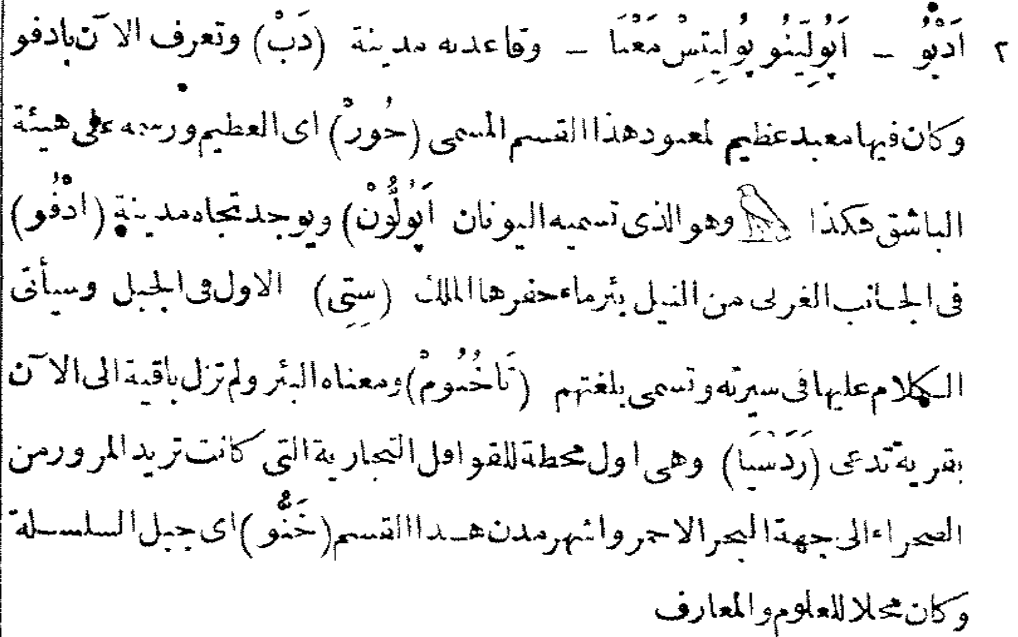 ٢ اَدْبُو ـ اَبُولِّينُو بُولِيتِسْ مَعْنَا ـ وقاعدته مدينة (دَبْ) وتعرف الآن بادفو
وكان فيها معبد عظيم لمعبود هذا القسم المسمى (حُورْ) اى العظيم ورسمه على هيئة
الباشق هكذا 𓅃 وهو الذى تسميه اليونان اَبُولُّونْ) ويوجد تجاه مدينة (ادْفُو)
فى الجانب الغربى من النيل بئر ماء حفرها الملك (سِتِى) الاول فى الجبل وسيأتى
الكلام عليها فى سيرته وتسمى بلغتهم (تَاخْنُومْ) ومعناه البئر ولم تزل باقية الى الآن
بقرية تدعى (رَدَسْيَا) وهى اول محطة للقوافل التجارية التى كانت تريد المرور من
الصحراء الى جهة البحر الاحمر واشهر مدن هذا القسم (خَنُّو) اى جبل السلسلة
وكان محلا للعلوم والمعارف